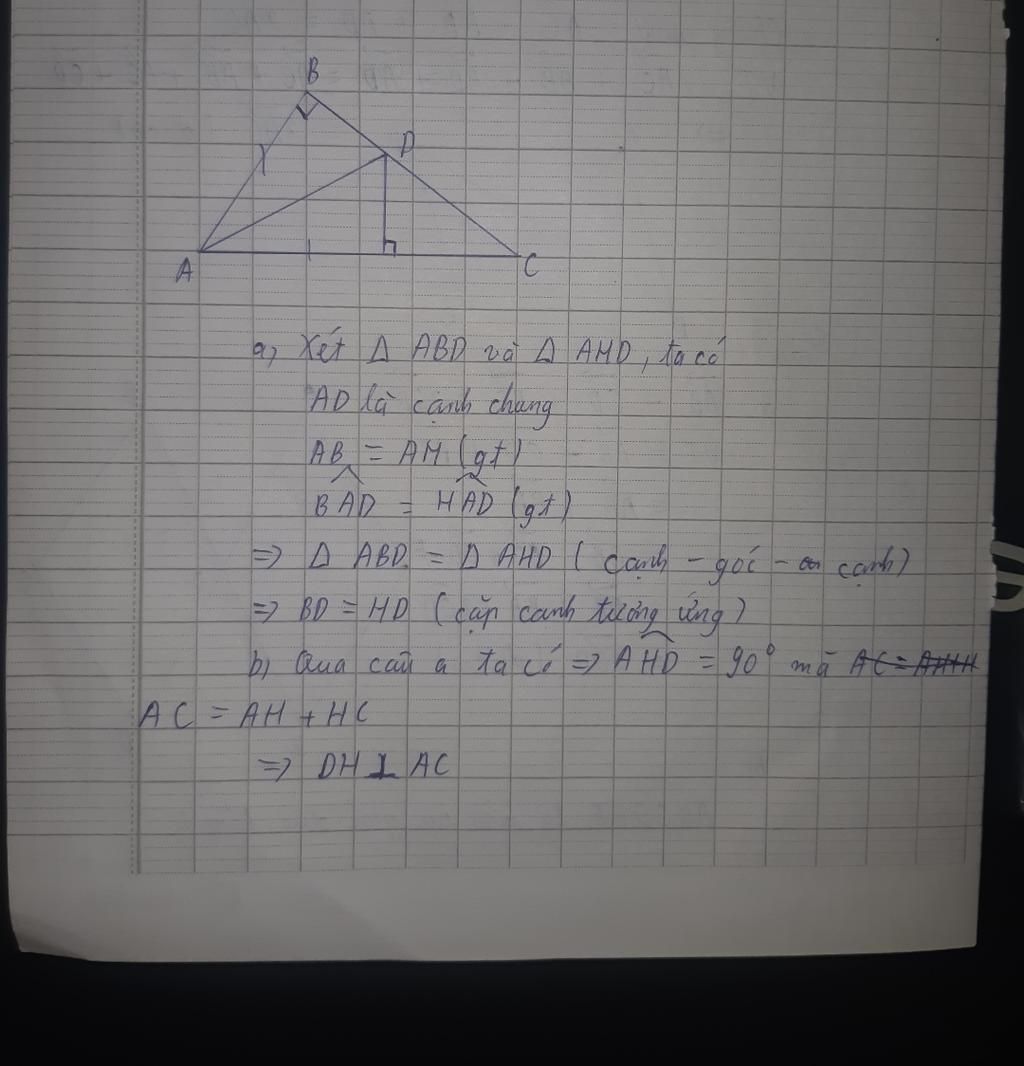 B
D
A
C
a, Xét Δ ABD và Δ AHD, ta có
AD là cạnh chung
AB = AH (gt)
BAD = HAD (gt)
=> Δ ABD = Δ AHD ( cạnh - góc - cạnh)
=> BD = HD (cặp cạnh tương ứng)
b, Qua câu a ta có => AHD = 90° mà
AC = AH + HC
=> DH ⊥ AC